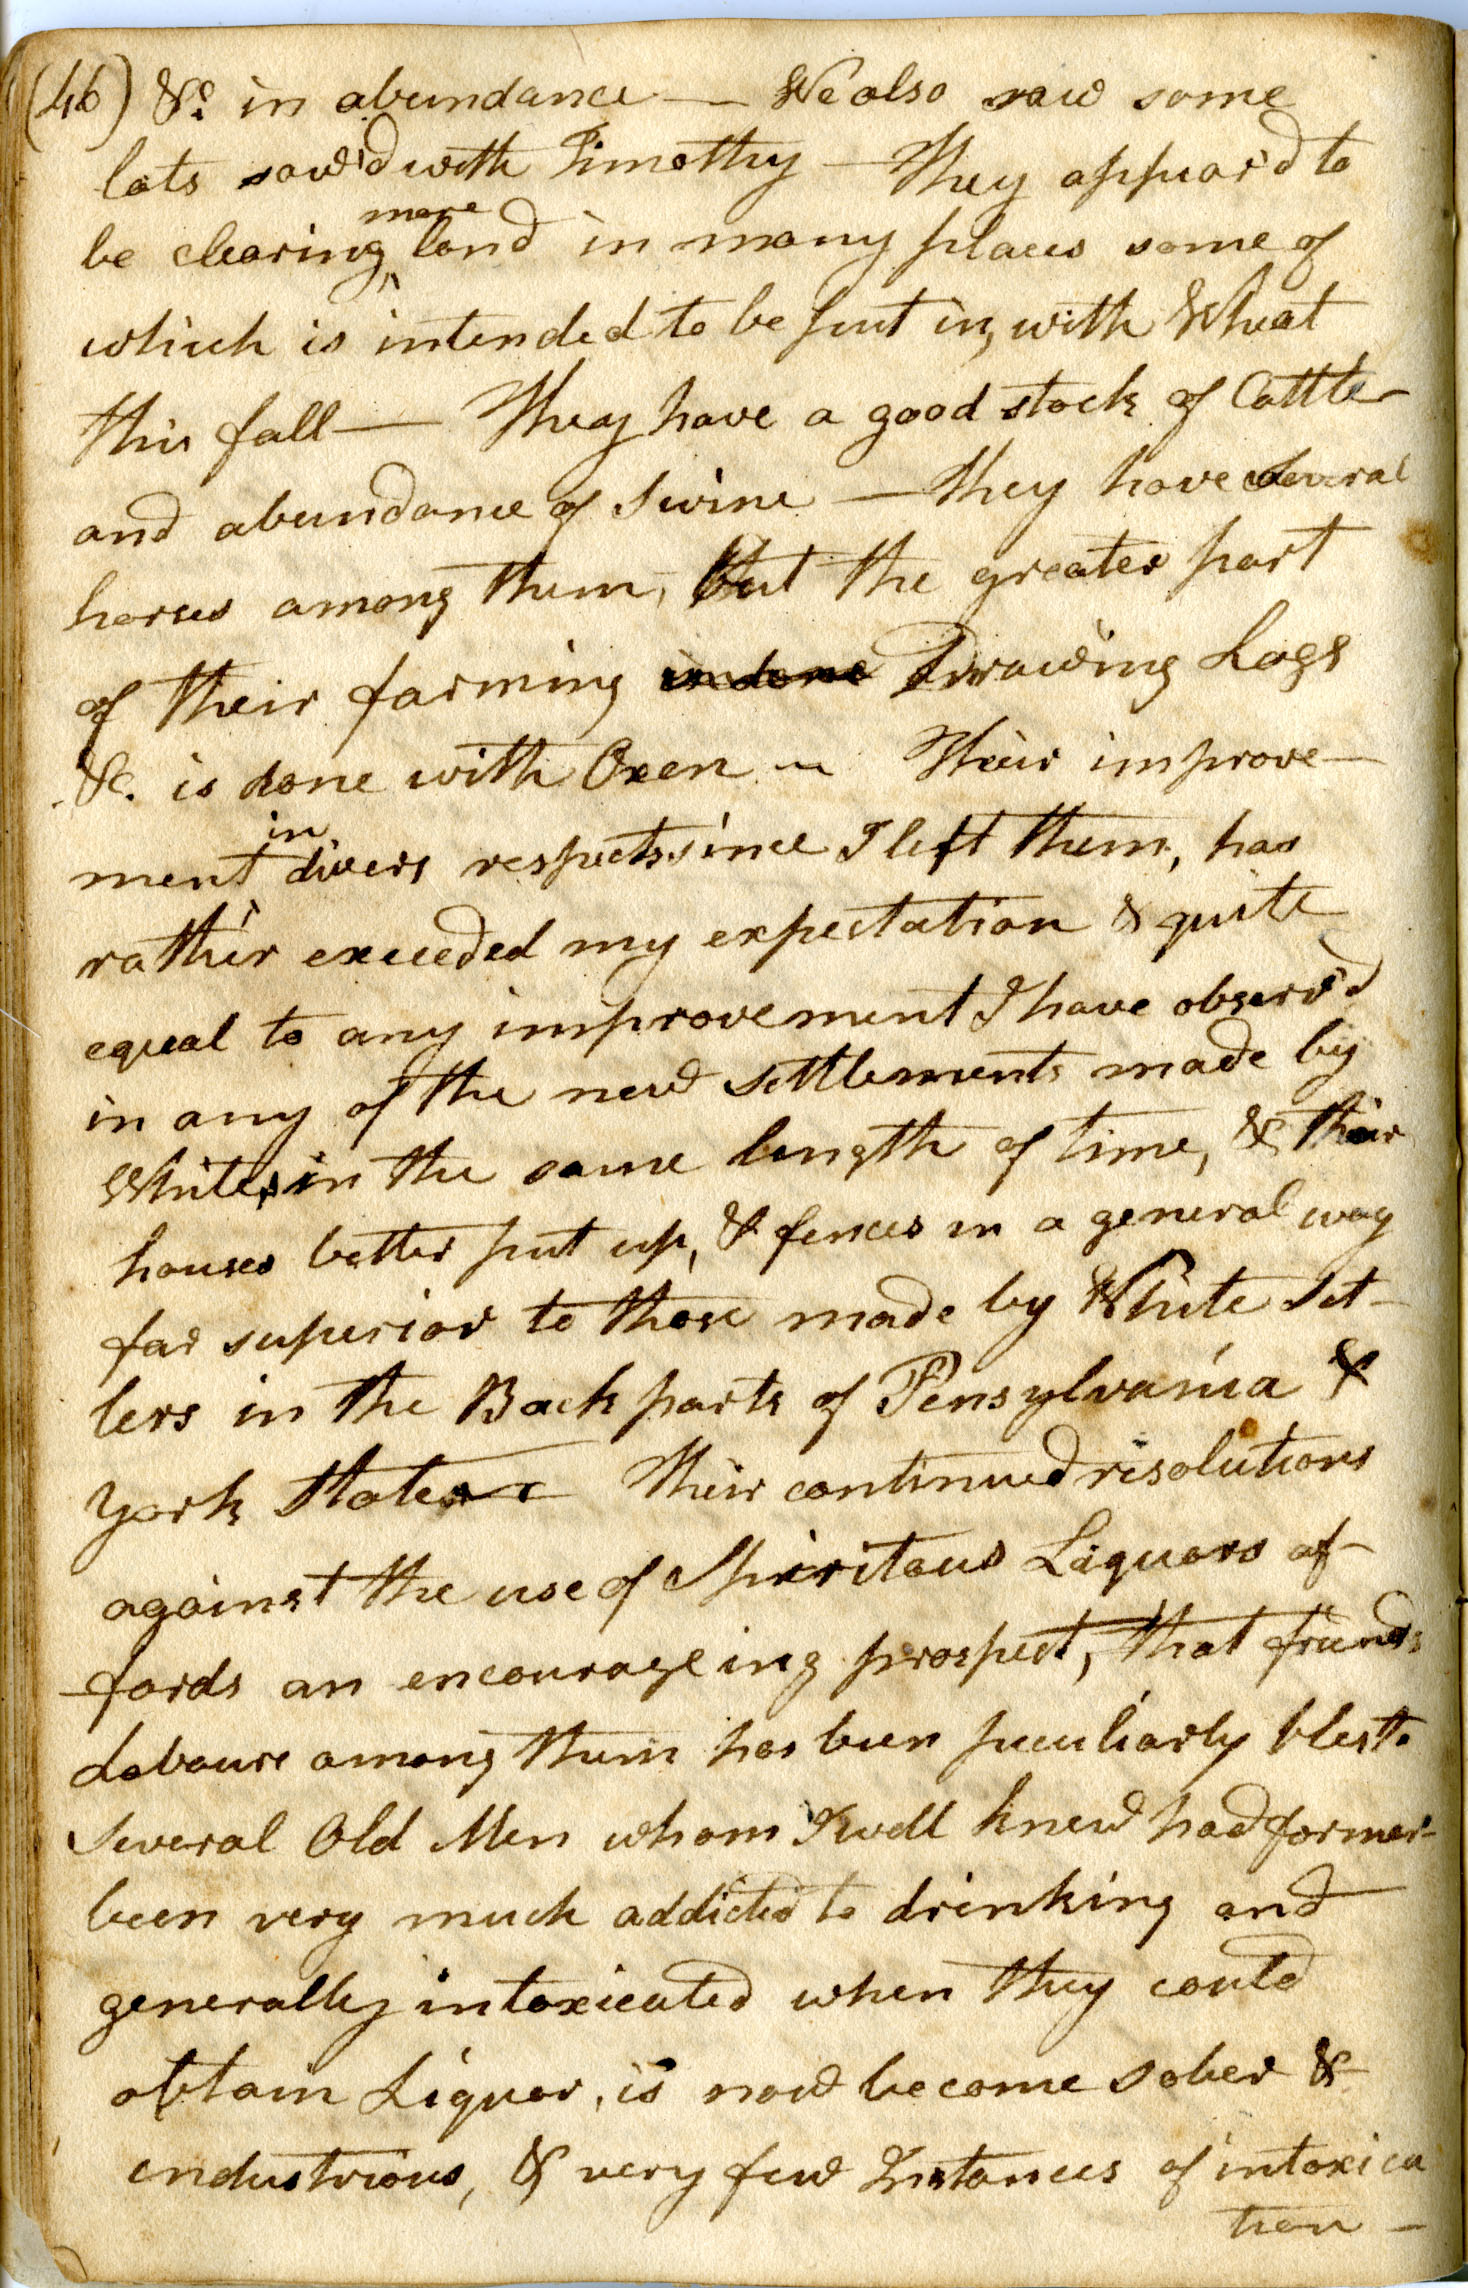 (46) &c. in abundance — We also saw some
lots sow'd with Timothy — They appear'd to
more
be clearing land in many places some of
which is intended to be put in, with Wheat
this fall — They have a good stock of Cattle
and abundance of Swine — they have several
horses among them, but the greater part
of their farming is done Drawing Logs
&c. is done with Oxen — Their improve-
in
ment divers respects since I left them, has
rather exceeded my expectation & quite
equal to any improvement I have observ'd
in any of the new settlements made by
Whites in the same length of time, & their
houses better put up, & fences in a general way
far superior to those made by White Set-
lers in the Back parts of Pensylvania &
York State — Their continued resolutions
against the use of Spiritous Liquors af-
fords an encourageing prospect, that friends
Labours among them has been peculiarly blest.
Several Old Men whom I well knew had former-
been very much addicted to drinking and
generally intoxicated when they could
obtain Liquor, is now become sober &
industrious, & very few Instances of intoxica
tion —